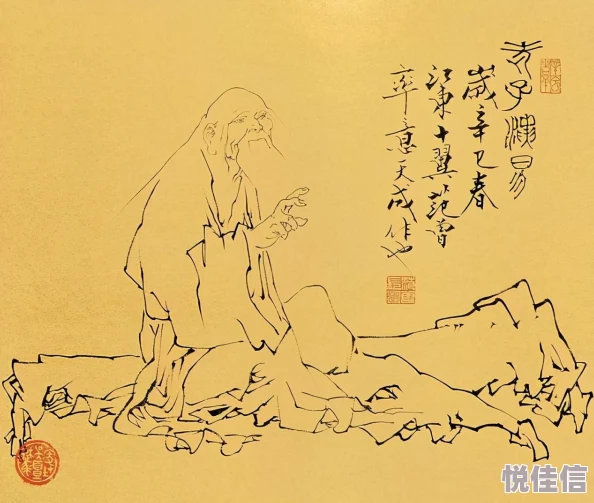 老子演易
歲辛巳春
江東十翼范曾
率意天成作也
悦佳信